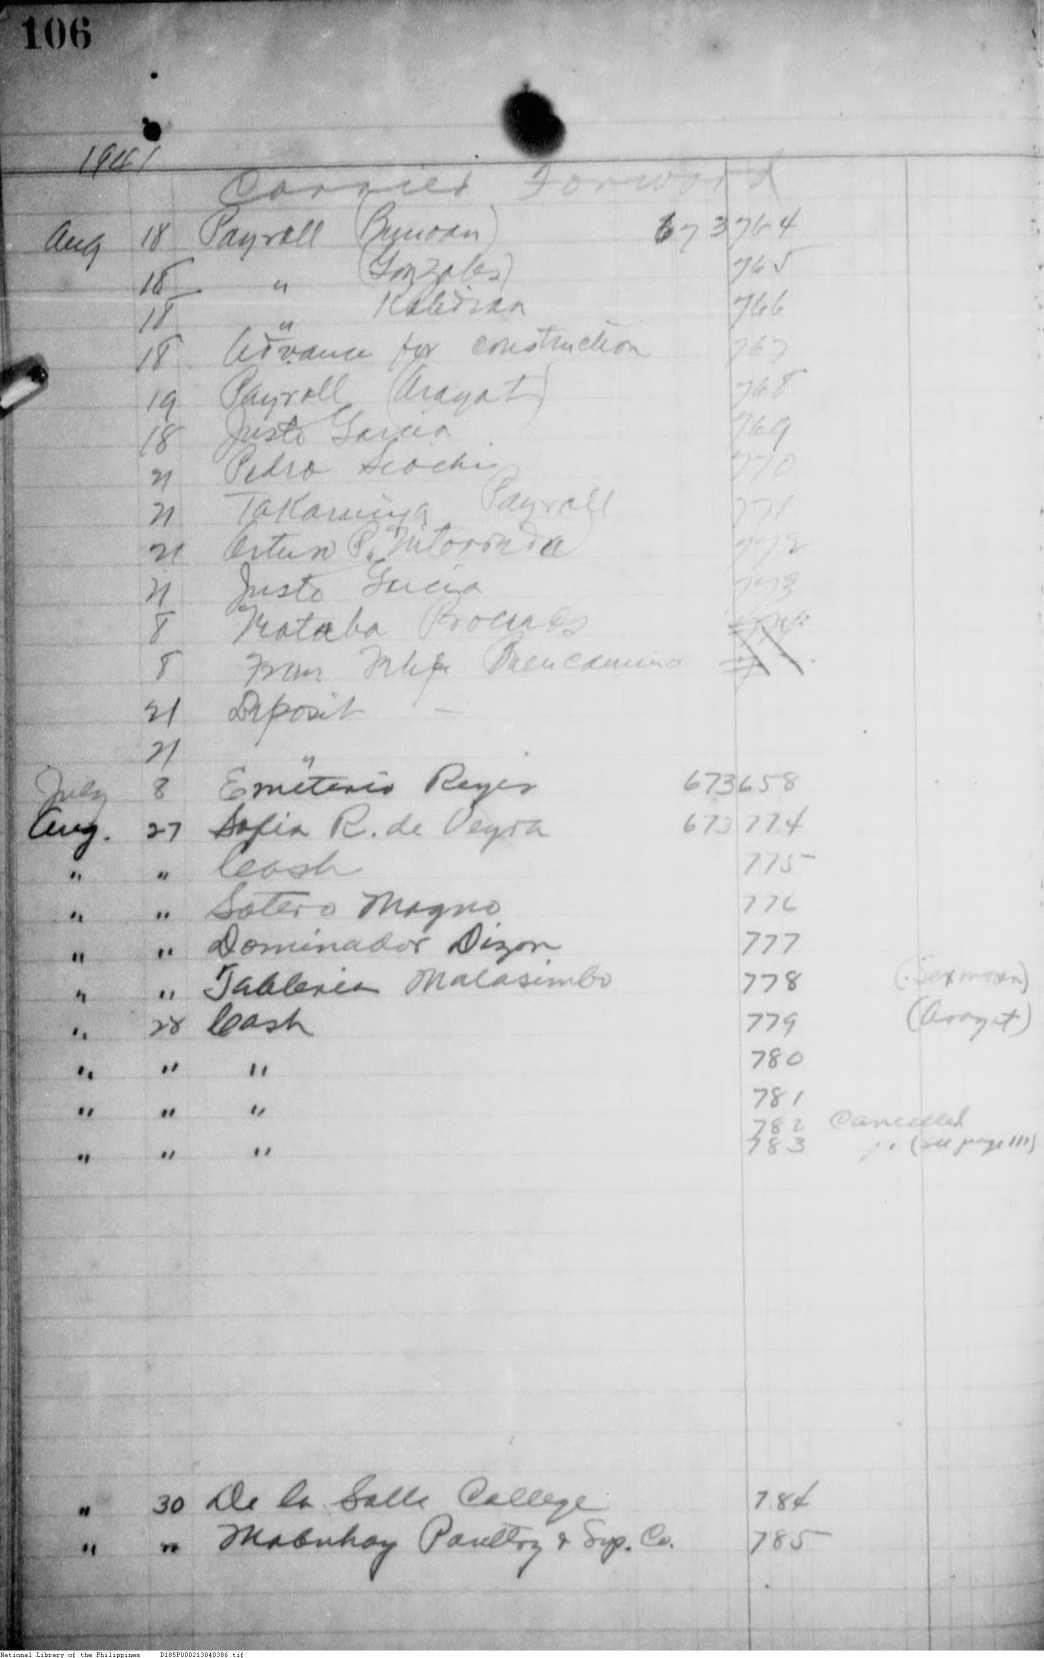 106
1941
Carried Forward
Aug 18 Payroll 673 764
18 " (Gonzales) 765
18 " 766
18 Advance for construction 767
19 Payroll (Arayat) 768
18 Justo Garcia 769
21 Pedro 770
21 Payroll 771
21 Arturo P. 772
21 Justo Garcia 773
8
8 From Buencamino
21 Deposit —
21 "
July 8 Emeterio Reyes 673658
Aug. 27 Sofia R. de Veyra 673 774
" " Cash 775
" " Sotero Magno 776
" " Dominador Dizon 777
" " Tableria Malasimbo 778 (Sexmoan)
" 28 Cash 779 (Arayat)
" " " 780
" " " 781
782 Cancelled
" " " 783 " (see page 111)
" 30 De la Salle College 784
" " Mabuhay Poultry & Sup. Co. 785
National Library of the Philippines D185P000213840386.tif